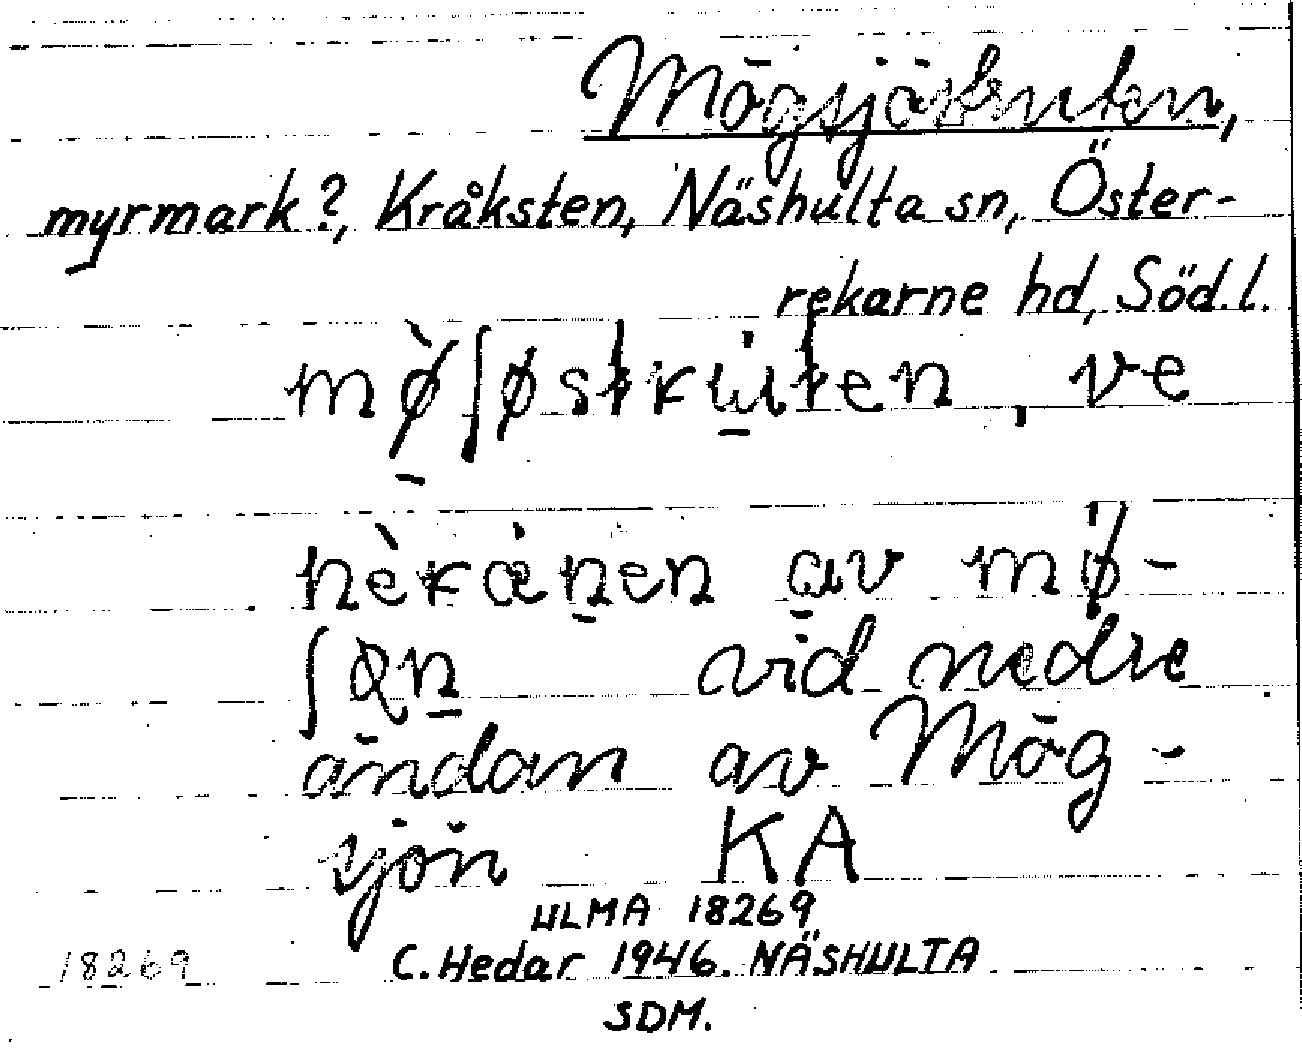 Mögsjöstruten,
myrmark?, Kråksten, Näshulta sn, Öster-
rekarne hd, Söd.l.
mø̀ʃøstru̇ten, ve
nèrȧnen av mø-
ʃøn vid nedre
ändan av Mög-
sjön KA
ULMA 18269
18269 C. Hedar 1946. NÄSHULTA
SDM.